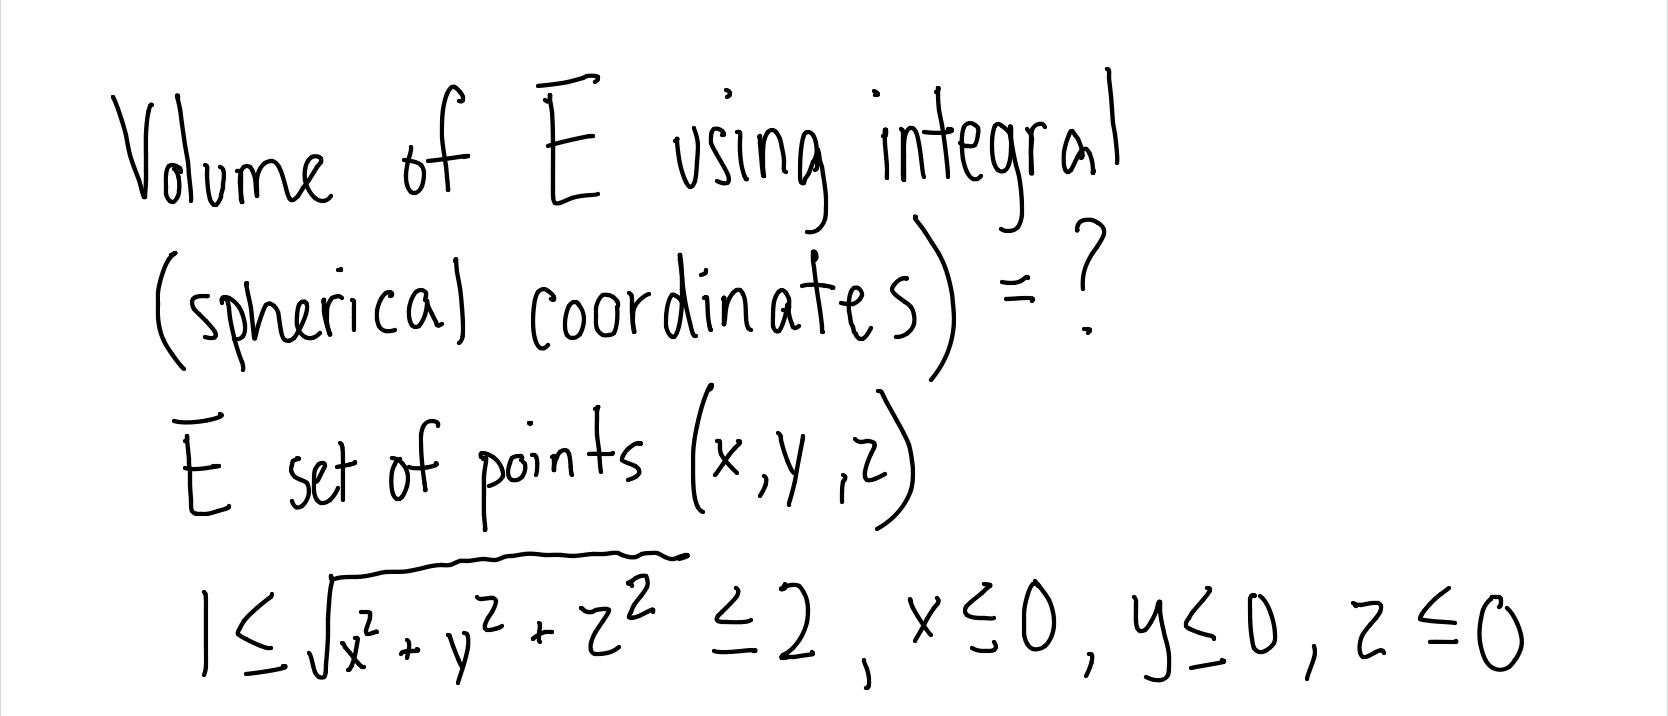 Volume of E using integral
(spherical coordinates) = ?
E set of points (x,y,z)
1 ≤ √(x² + y² + z²) ≤ 2, x ≤ 0, y ≤ 0, z ≤ 0